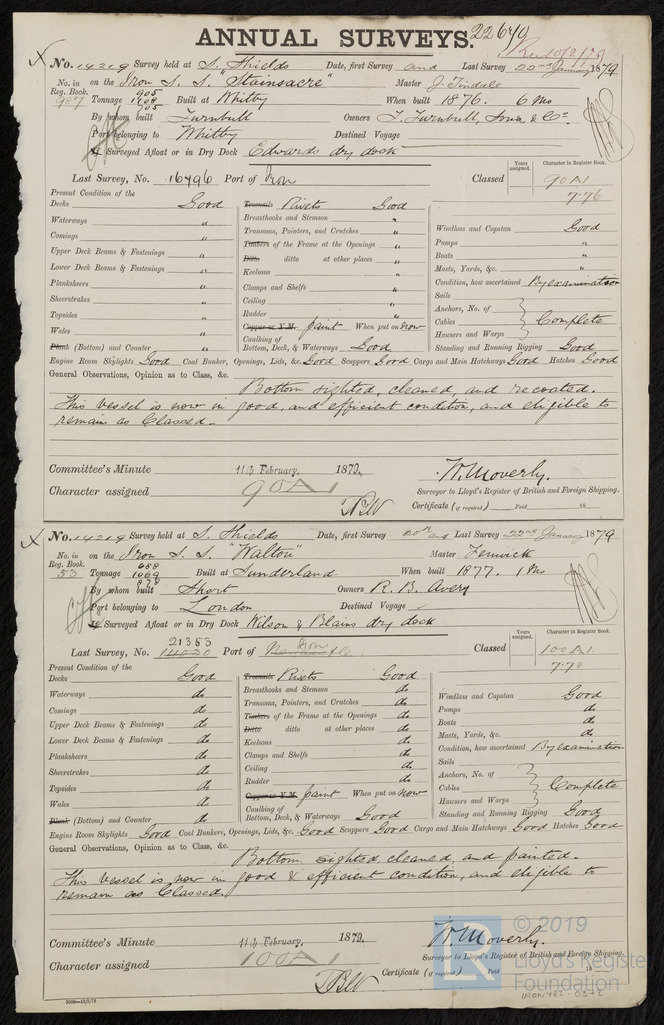 ANNUAL SURVEYS. 22649
No. 14219 Survey held at S. Shields Date, first Survey and Last Survey 22nd January 1879
No. in Reg. Book. 987 on the Iron S. S. "Stainsacre" Master J. Tindale
Tonnage 905 1408 705 Built at Whitby When built 1876. 6 Mo
By whom built Turnbull Owners T. Turnbull, Sons, & Co.
Port belonging to Whitby Destined Voyage
If Surveyed Afloat or in Dry Dock Edwards dry dock
Last Survey, No. 16496 Port of Iron Classed Years assigned. Character in Register Book. 90A1
7.76
Present Condition of the
Decks Good Treenails Rivets Good
Waterways " Breasthooks and Stemson " Windlass and Capstan Good
Comings " Transoms, Pointers, and Crutches " Pumps "
Upper Deck Beams & Fastenings " Timbers of the Frame at the Openings " Boats "
Lower Deck Beams & Fastenings " Ditto ditto at other places " Masts, Yards, &c. "
Planksheers " Keelsons " Condition, how ascertained By examination
Sheerstrakes " Clamps and Shelfs " Sails
Topsides " Ceiling " Anchors, No. of
Wales " Rudder " Cables Complete
Plank (Bottom) and Counter " Copper or Y.M. paint When put on now Hawsers and Warps
Caulking of Bottom, Deck, & Waterways Good Standing and Running Rigging Good
Engine Room Skylights Good Coal Bunker, Openings, Lids, &c. Good Scuppers Good Cargo and Main Hatchways Good Hatches Good
General Observations, Opinion as to Class, &c.
Bottom sighted, cleaned, and recoated.
This vessel is now in good, and efficient condition, and eligible to
remain as Classed.
Committee's Minute 11th February, 1879. W. Moverly.
Character assigned 90A1 Surveyor to Lloyd's Register of British and Foreign Shipping.
Certificate (if required) Paid 18
No. 14219 Survey held at S. Shields Date, first Survey 20th and Last Survey 22nd January 1879
No. in Reg. Book. 53 on the Iron S. S. "Walton" Master Fenwick
Tonnage 688 1069 878 Built at Sunderland When built 1877. 1 Mo
By whom built Short Owners R. B. Avery
Port belonging to London Destined Voyage
If Surveyed Afloat or in Dry Dock Wilson & Blains dry dock
21353
Last Survey, No. 14020 Port of Iron Classed Years assigned. Character in Register Book. 100A1
7.78
Present Condition of the
Decks Good Treenails Rivets Good
Waterways do Breasthooks and Stemson do Windlass and Capstan Good
Comings do Transoms, Pointers, and Crutches do Pumps do
Upper Deck Beams & Fastenings do Timbers of the Frame at the Openings do Boats do
Lower Deck Beams & Fastenings do Ditto ditto at other places do Masts, Yards, &c. do
Planksheers do Keelsons do Condition, how ascertained By examination
Sheerstrakes do Clamps and Shelfs do Sails
Topsides do Ceiling do Anchors, No. of
Wales do Rudder do Cables Complete
Plank (Bottom) and Counter do Copper or Y.M. paint When put on now Hawsers and Warps
Caulking of Bottom, Deck, & Waterways Good Standing and Running Rigging Good
Engine Room Skylights Good Coal Bunkers, Openings, Lids, &c. Good Scuppers Good Cargo and Main Hatchways Good Hatches Good
General Observations, Opinion as to Class, &c.
Bottom, sighted, cleaned, and painted.
This vessel is now in good & efficient condition, and eligible to
remain as Classed.
Committee's Minute 11th February, 1879. W. Moverly.
Character assigned 100A1 Surveyor to Lloyd's Register of British and Foreign Shipping.
Certificate (if required) Paid 18
© 2019
Lloyd's Register
Foundation
IRON482-0372